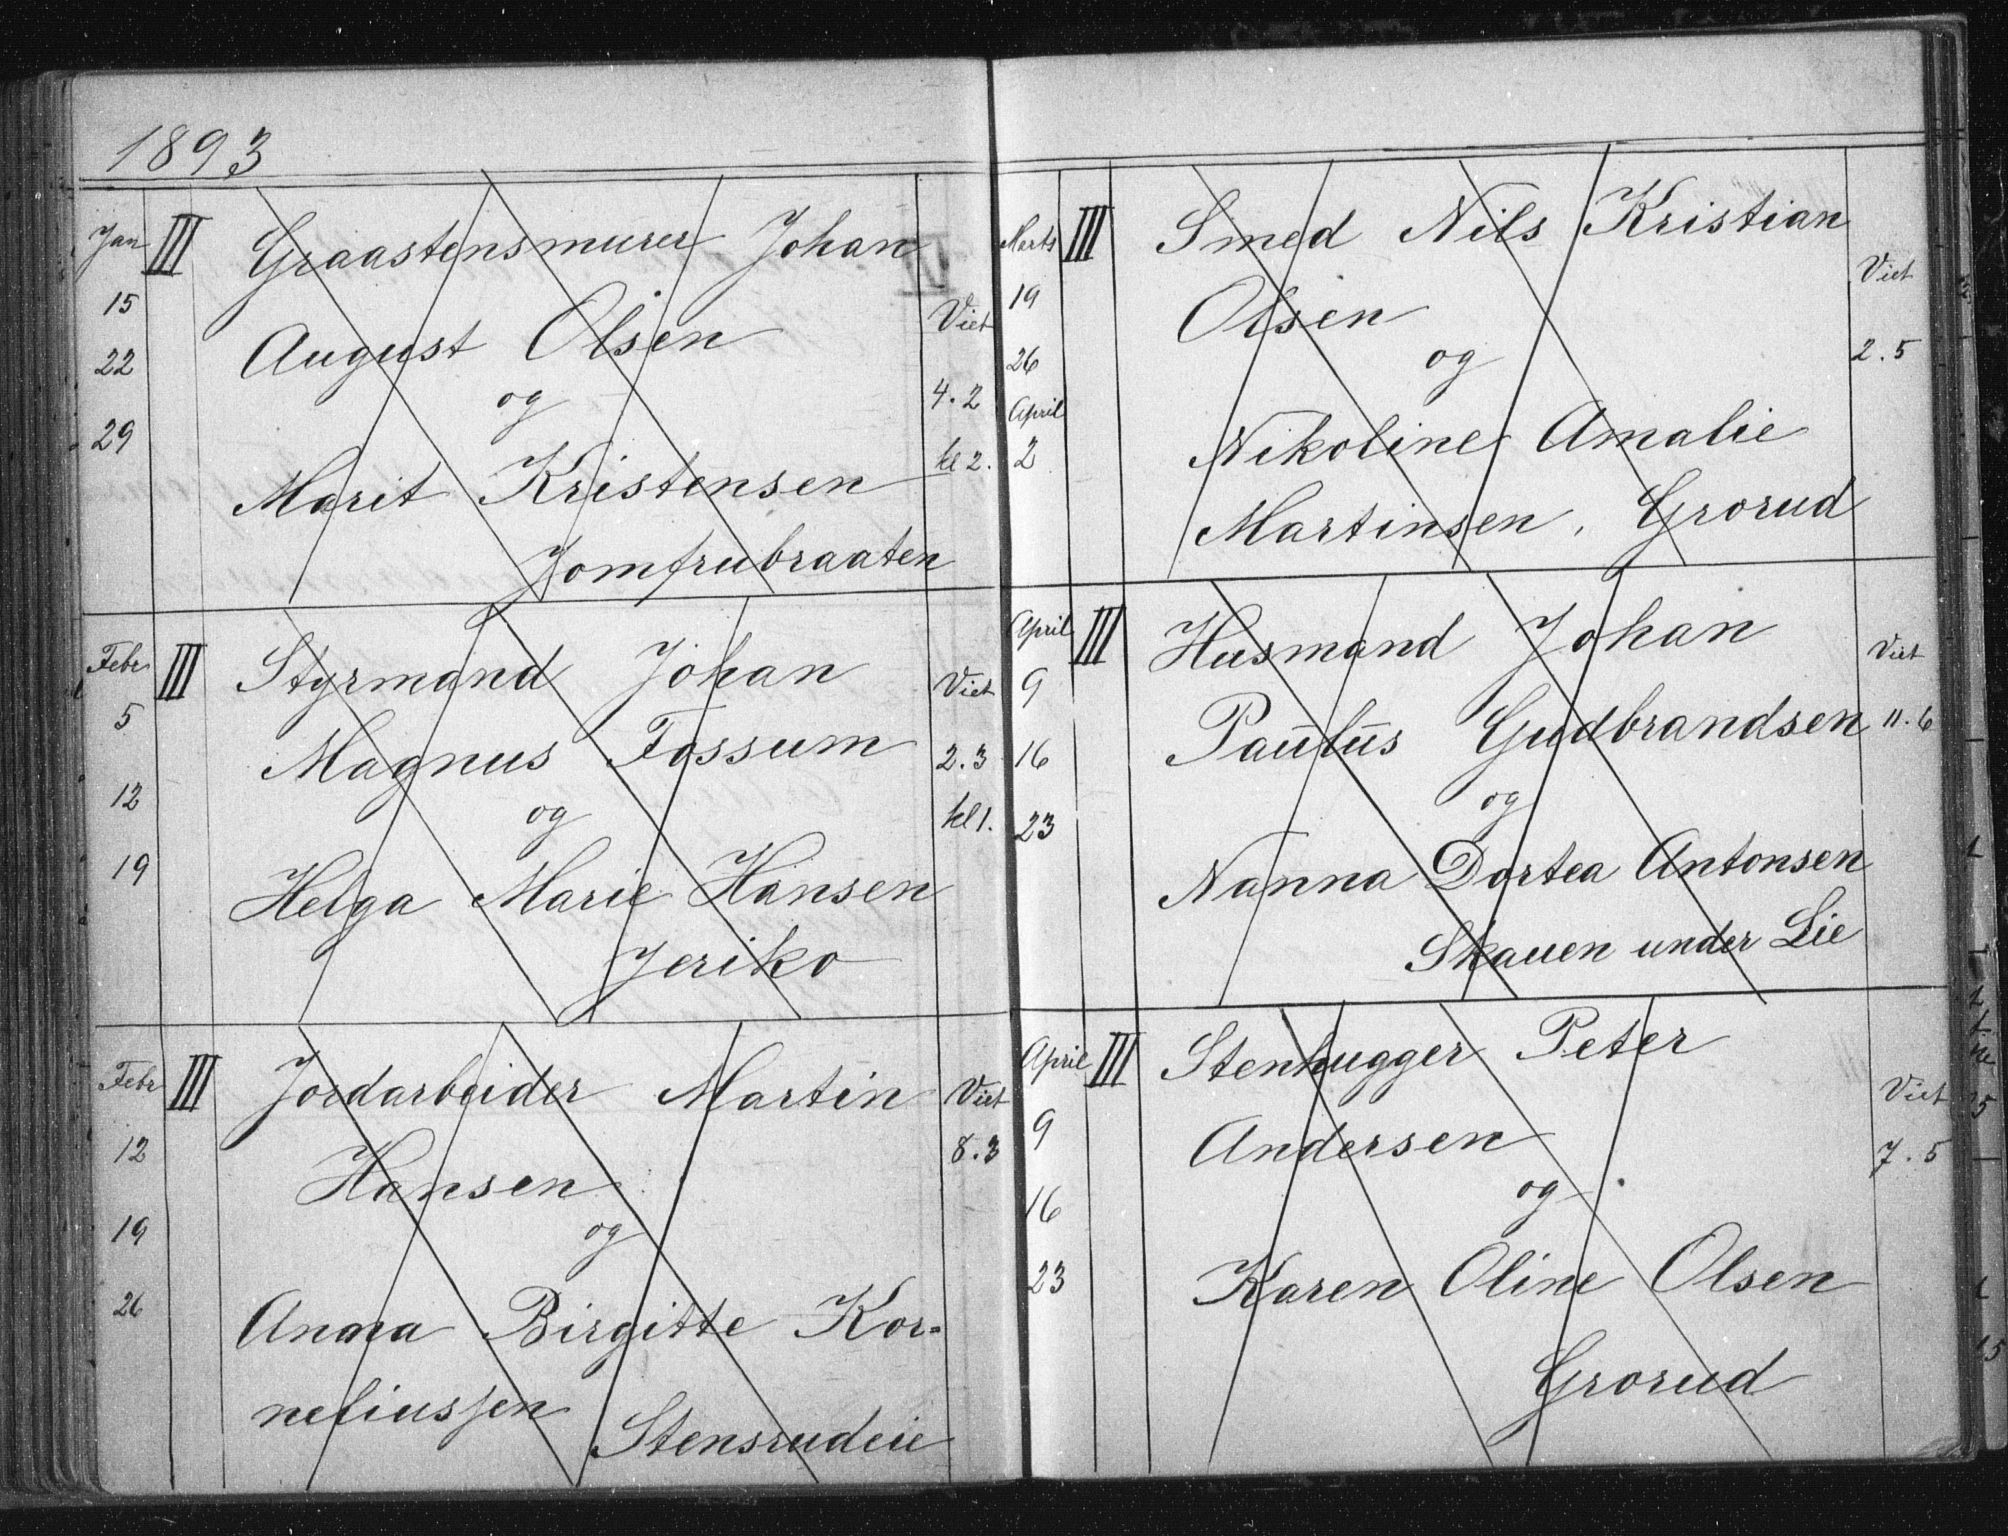 1893
Jan III Graastensmurer Johan
15 August Olsen Viet
22 og 4.2
29 Marit Kristensen kl 2.
Jomfrubraaten
Febr III Styrmand Johan Viet
5 Magnus Fossum 2.3
12 og kl 1.
19 Helga Marie Hansen
Jeriko
Febr III Jordarbeider Martin Viet
12 Hansen 8.3
19 og
26 Anna Birgitte Kor-
neliussen Stensrudeie
Marts III Smed Nils Kristian Viet
19 Olsen 2.5
26 og
April Nikoline Amalie
2 Martinsen, Grorud
April III Husmand Johan Viet
9 Paulus Gudbrandsen 11.6
16 og
23 Nanna Dortea Antonsen
Skauen under Lie
April III Stenhugger Peter Viet
9 Andersen 7.5
16 og
23 Karen Oline Olsen
Grorud